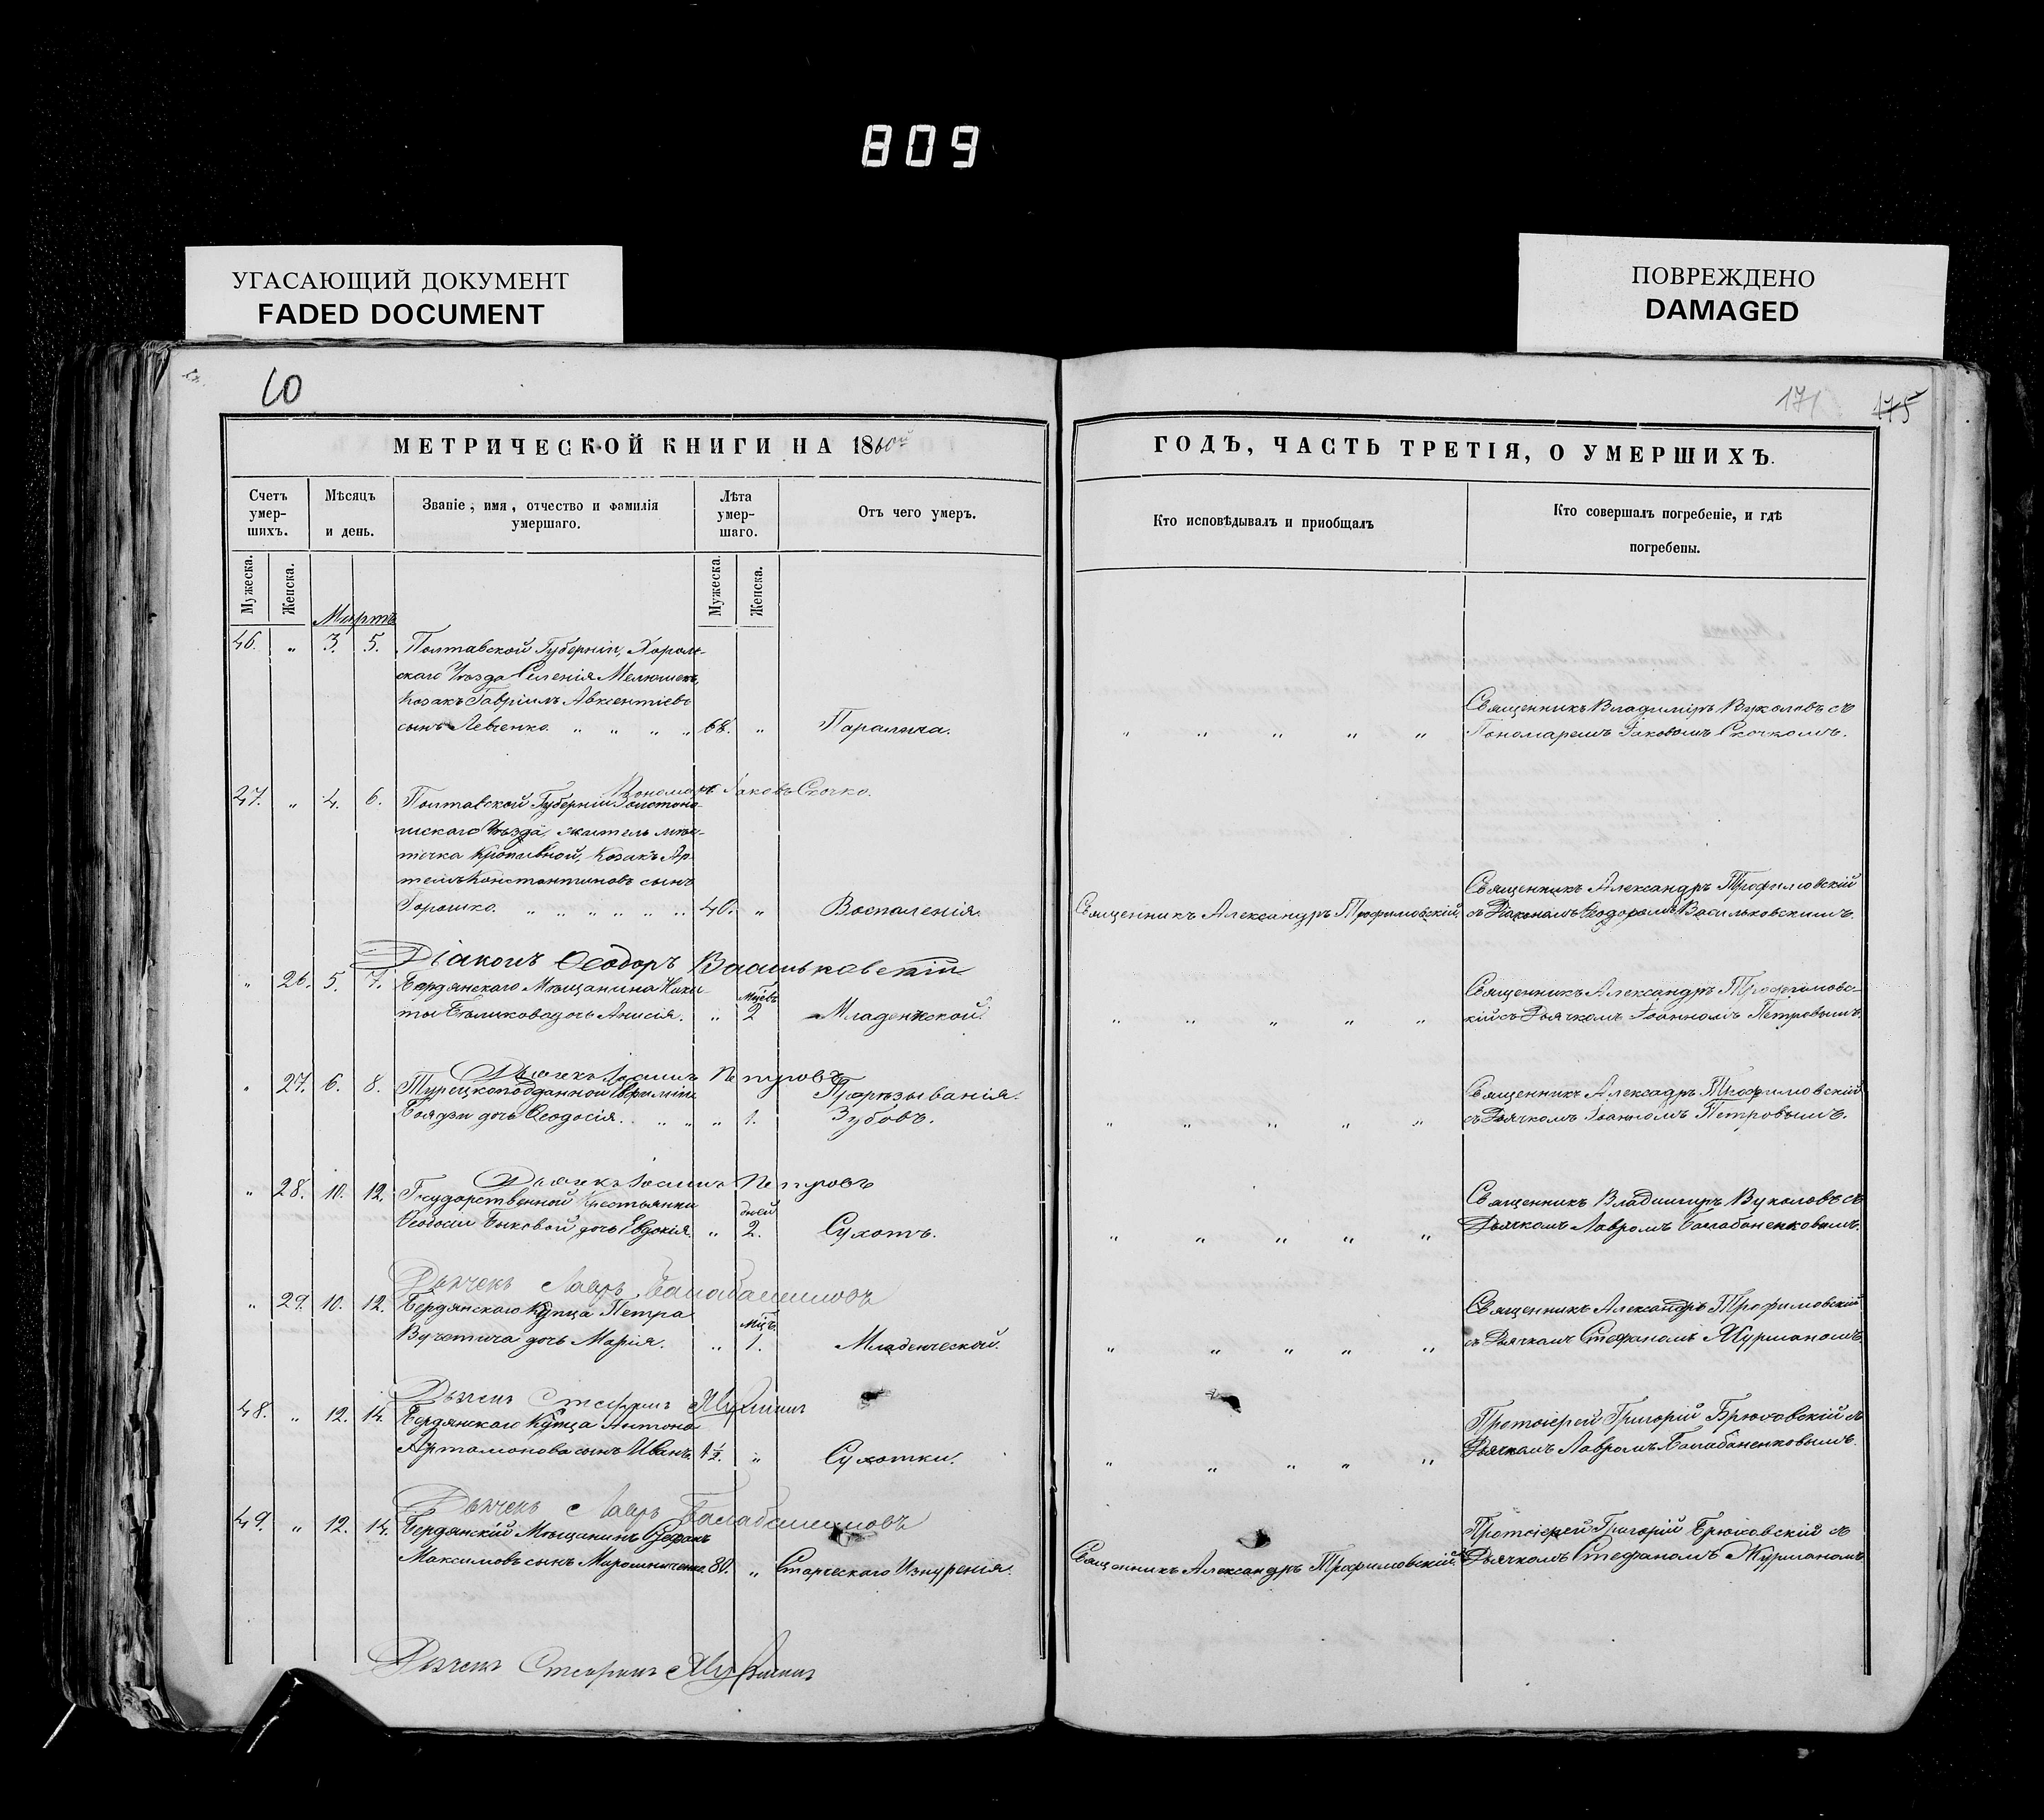 809
УГАСАЮЩИЙ ДОКУМЕНТ
FADED DOCUMENT
ПОВРЕЖДЕНО
DAMAGED
60
171
175
МЕТРИЧЕСКОЙ КНИГИ НА 1860й
ГОДЪ, ЧАСТЬ ТРЕТІЯ, О УМЕРШИХЪ.
Счетъ умер-шихъ.
Мѣсяцъ и день.
Званіе, имя, отчество и фамилія умершаго.
Лѣта умер-шаго.
Отъ чего умеръ.
Кто исповѣдывалъ и приобщалъ
Кто совершалъ погребеніе, и гдѣ погребены.
Мужеска. Женска. Мужеска Женска.
Мартъ
46. „ 3. 5. Полтавской Губерніи, Хороль-
скаго Уѣзда Селенія
Козакъ Гавріилъ Авксентіевъ
сынъ Левченко. „ „ „ „ 68. „ Паралича. „ „ „ „ „
Священникъ Владиміръ Вуколовъ съ
Пономаремъ Іаковомъ Скочкомъ.
Пономарь Іаковъ Скочко.
47. „ 4. 6. Полтавской Губерніи Золотоно-
шскаго Уѣзда, житель мѣс-
течка Кропивной, Козакъ Ар-
темъ Константиновъ сынъ
Горошко. „ „ „ „ „ „ 40. „ Воспаленія. Священникъ Александръ Трофимовскій.
Священникъ Александръ Трофимовскій
съ Діакономъ Ѳеодоромъ Васильковскимъ.
Діаконъ Ѳеодоръ Васильковскій
„ 26. 5. 7. Бердянскаго Мѣщанина Ники-
ты Бѣликова дочь Анисія. „ Мцевъ 2 Младенческой. „ „ „ „ „
Священникъ Александръ Трофимовс-
кій съ Дьячкомъ Іоанномъ Петровымъ.
Дьячекъ Іоаннъ Петровъ
„ 27. 6. 8. Турецкоподданной
дочь Ѳеодосія. „ „ „ 1. Прорѣзыванія
Зубовъ. „ „ „ „ „
Священникъ Алексадръ Трофимовскій
съ Дьячкомъ Іоанномъ Петровымъ.
Дьячекъ Іоаннъ Петровъ
„ 28. 10. 12. Государственной Крестьянки
Ѳеодосіи Быковой дочь Евдокія. „ дней 2. Сухотъ. „ „ „ „ „
Священникъ Владимиръ Вуколовъ съ
Дьячкомъ Лавромъ Балабаненковымъ.
Дьячекъ Лавръ Балабаненковъ
„ 29. 10. 12. Бердянскаго Купца Петра
Вучетича дочь Марія. „ Мцъ. 1. Младенческой. „ „ „ „ „
Священникъ Александръ Трофимовскій
съ Дьячкомъ Стефаномъ Журманомъ
Дьячекъ Стефанъ Журманъ
48. „ 12. 14. Бердянскаго Купца Антона
Артамонова сынъ Иванъ. 1½. „ Сухотки. „ „ „ „ „
Протоіерей Григорій Брюховскій съ
Дьячкомъ Лавромъ Балабаненковымъ.
Дьячекъ Лавръ Балабаненковъ
49. „ 12. 14. Бердянскій Мѣщанинъ
Максимовъ сынъ Мирошниченко. 80. „ Старческаго Изнуренія. Священникъ Александръ Трофимовскій.
Протоіерей Григорій Брюховскій съ
Дьячкомъ Стефаномъ Журманомъ
Дьячекъ Стефанъ Журманъ